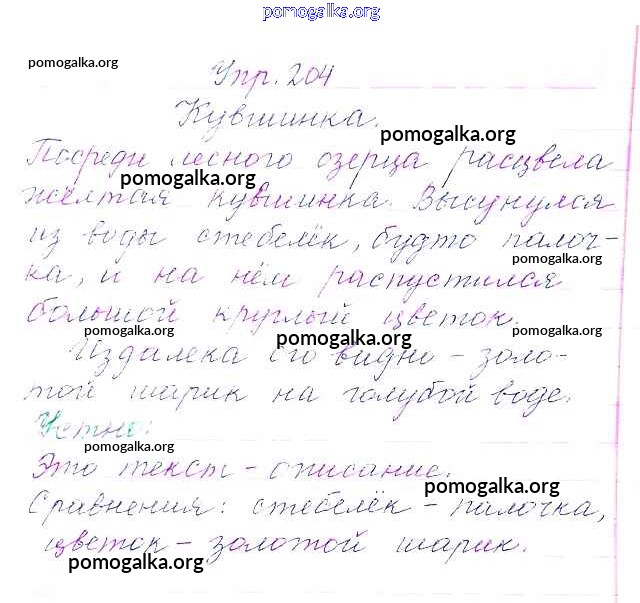 pomogalka.org
pomogalka.org
Упр. 204
Кувшинка.
pomogalka.org
Посреди лесного озерца расцвела
pomogalka.org
жёлтая кувшинка. Высунулся
из воды стебелёк, будто палоч-
pomogalka.org
ка, и на нём распустился
большой круглый цветок.
pomogalka.org pomogalka.org pomogalka.org
Издалека его видно – золо-
той шарик на голубой воде.
Устно:
pomogalka.org
Это текст – описание.
pomogalka.org
Сравнения: стебелёк – палочка,
цветок – золотой шарик.
pomogalka.org